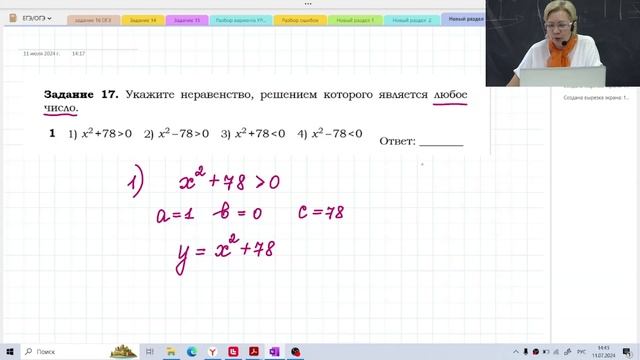 ЕГЭ/ОГЭ
задание 16 ОГЭ Задание 14 Задание 15 Разбор варианта УР... Разбор ошибок Новый раздел 1 Новый раздел 2 Новый раздел
11 июля 2024 г. 14:17
Создана вырезка экрана: 1...
Задание 17. Укажите неравенство, решением которого является любое
число.
1 1) x²+78>0 2) x²−78>0 3) x²+78<0 4) x²−78<0 Ответ: ________
1) x²+78>0
a=1 b=0 c=78
y=x²+78
Поиск
РУС
14:43
11.07.2024